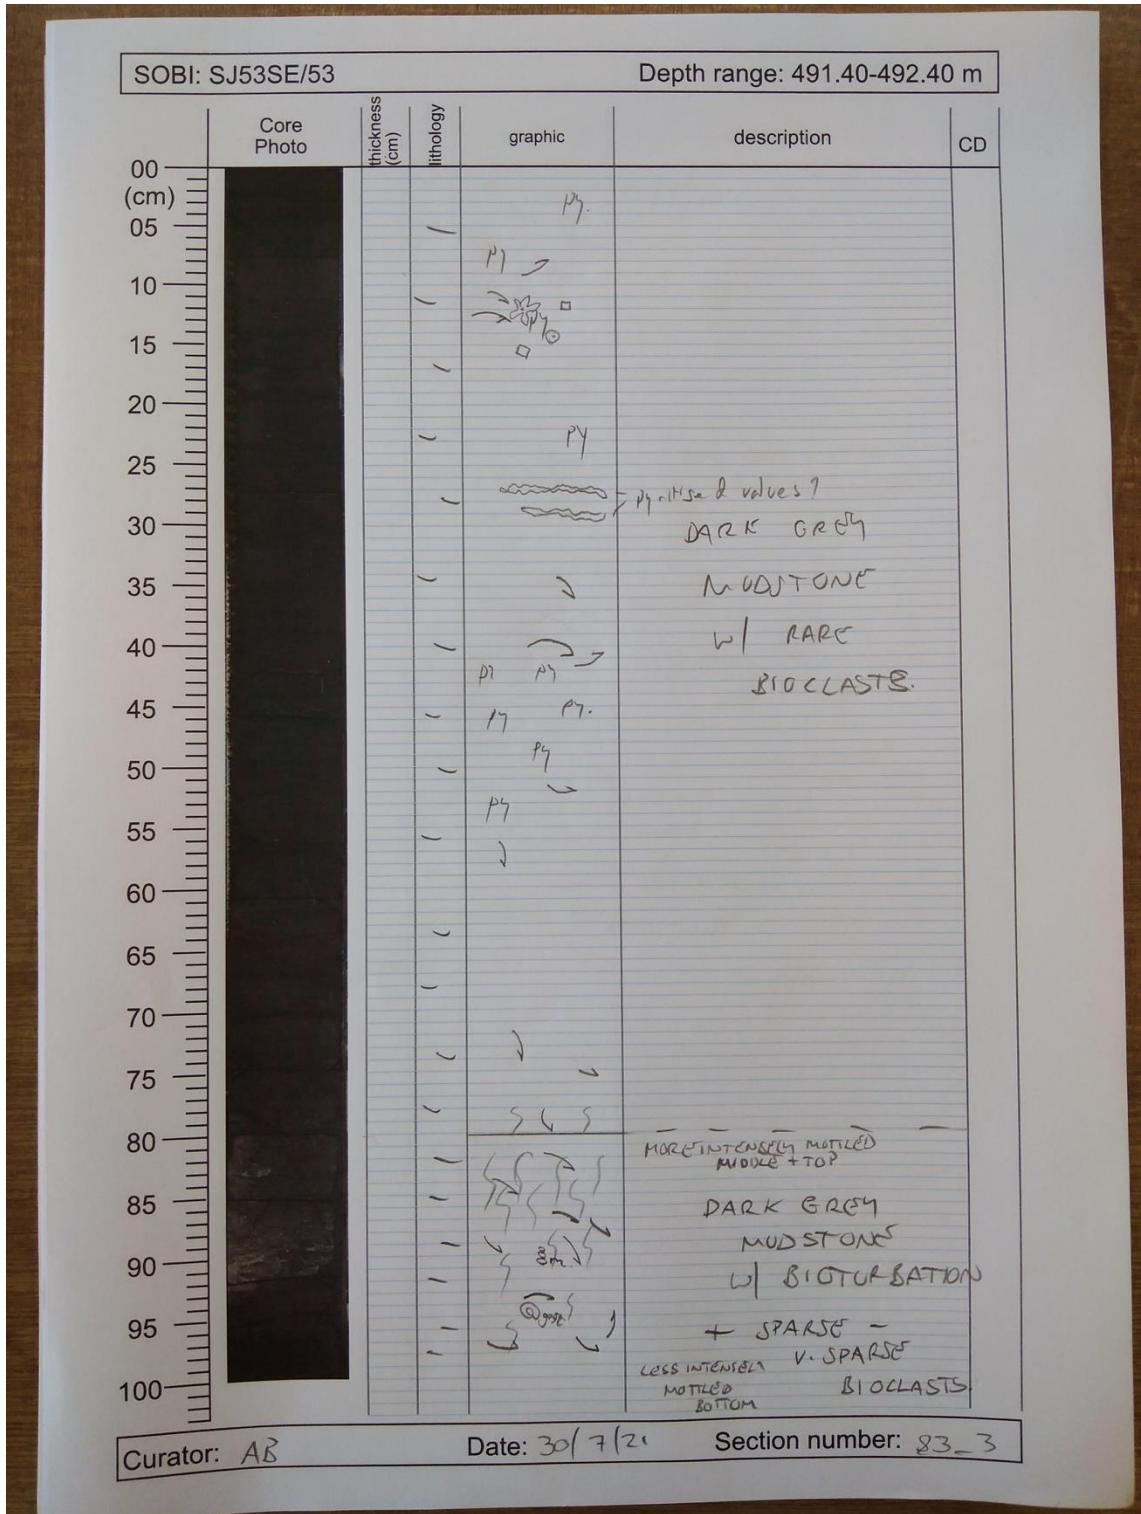 SOBI: SJ53SE/53
Depth range: 491.40-492.40 m
Core
Photo
thickness
(cm)
lithology
graphic
description
CD
00
(cm)
05
10
15
20
25
30
35
40
45
50
55
60
65
70
75
80
85
90
95
100
py.
py
py
py
pyritised valves?
DARK GREY
MUDSTONE
W/ RARE
BIOCLASTS.
py py
py py.
py
py
MORE INTENSELY MOTTLED
MIDDLE + TOP
DARK GREY
MUDSTONE
W/ BIOTURBATION
+ SPARSE -
V. SPARSE
BIOCLASTS
LESS INTENSELY
MOTTLED
BOTTOM
Curator: AB
Date: 30/7/21
Section number: 83_3